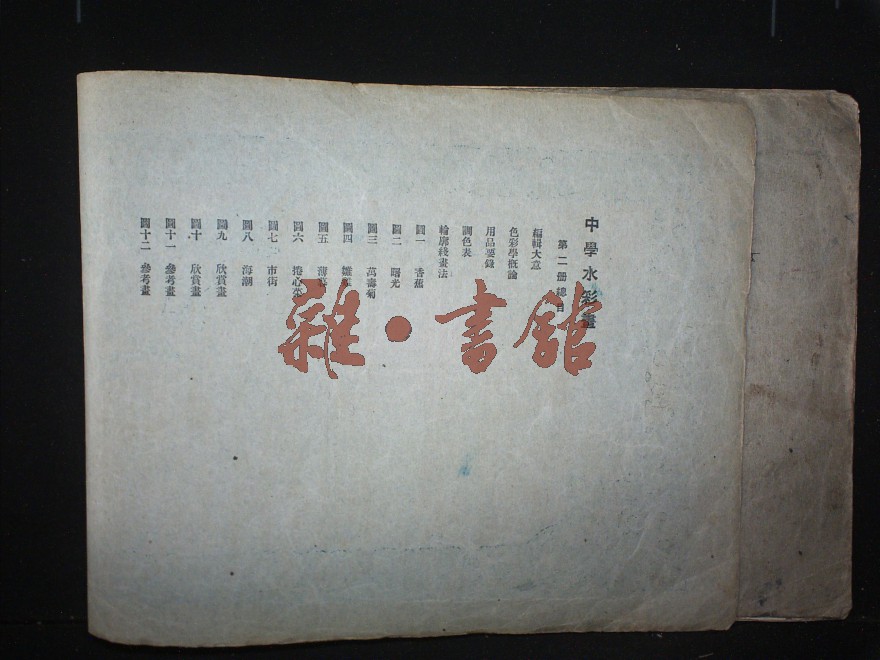 中學水彩畫
第二册總目
編輯大意
色彩學概論
用品要錄
調色表
輪廓綫畫法
圖一 香蕉
圖二 曙光
圖三 萬壽菊
圖四
圖五 薄暮
圖六 捲心菜
圖七 市街
圖八 海潮
圖九 欣賞畫
圖十 欣賞畫
圖十一 參考畫
圖十二 參考畫
雜·書館